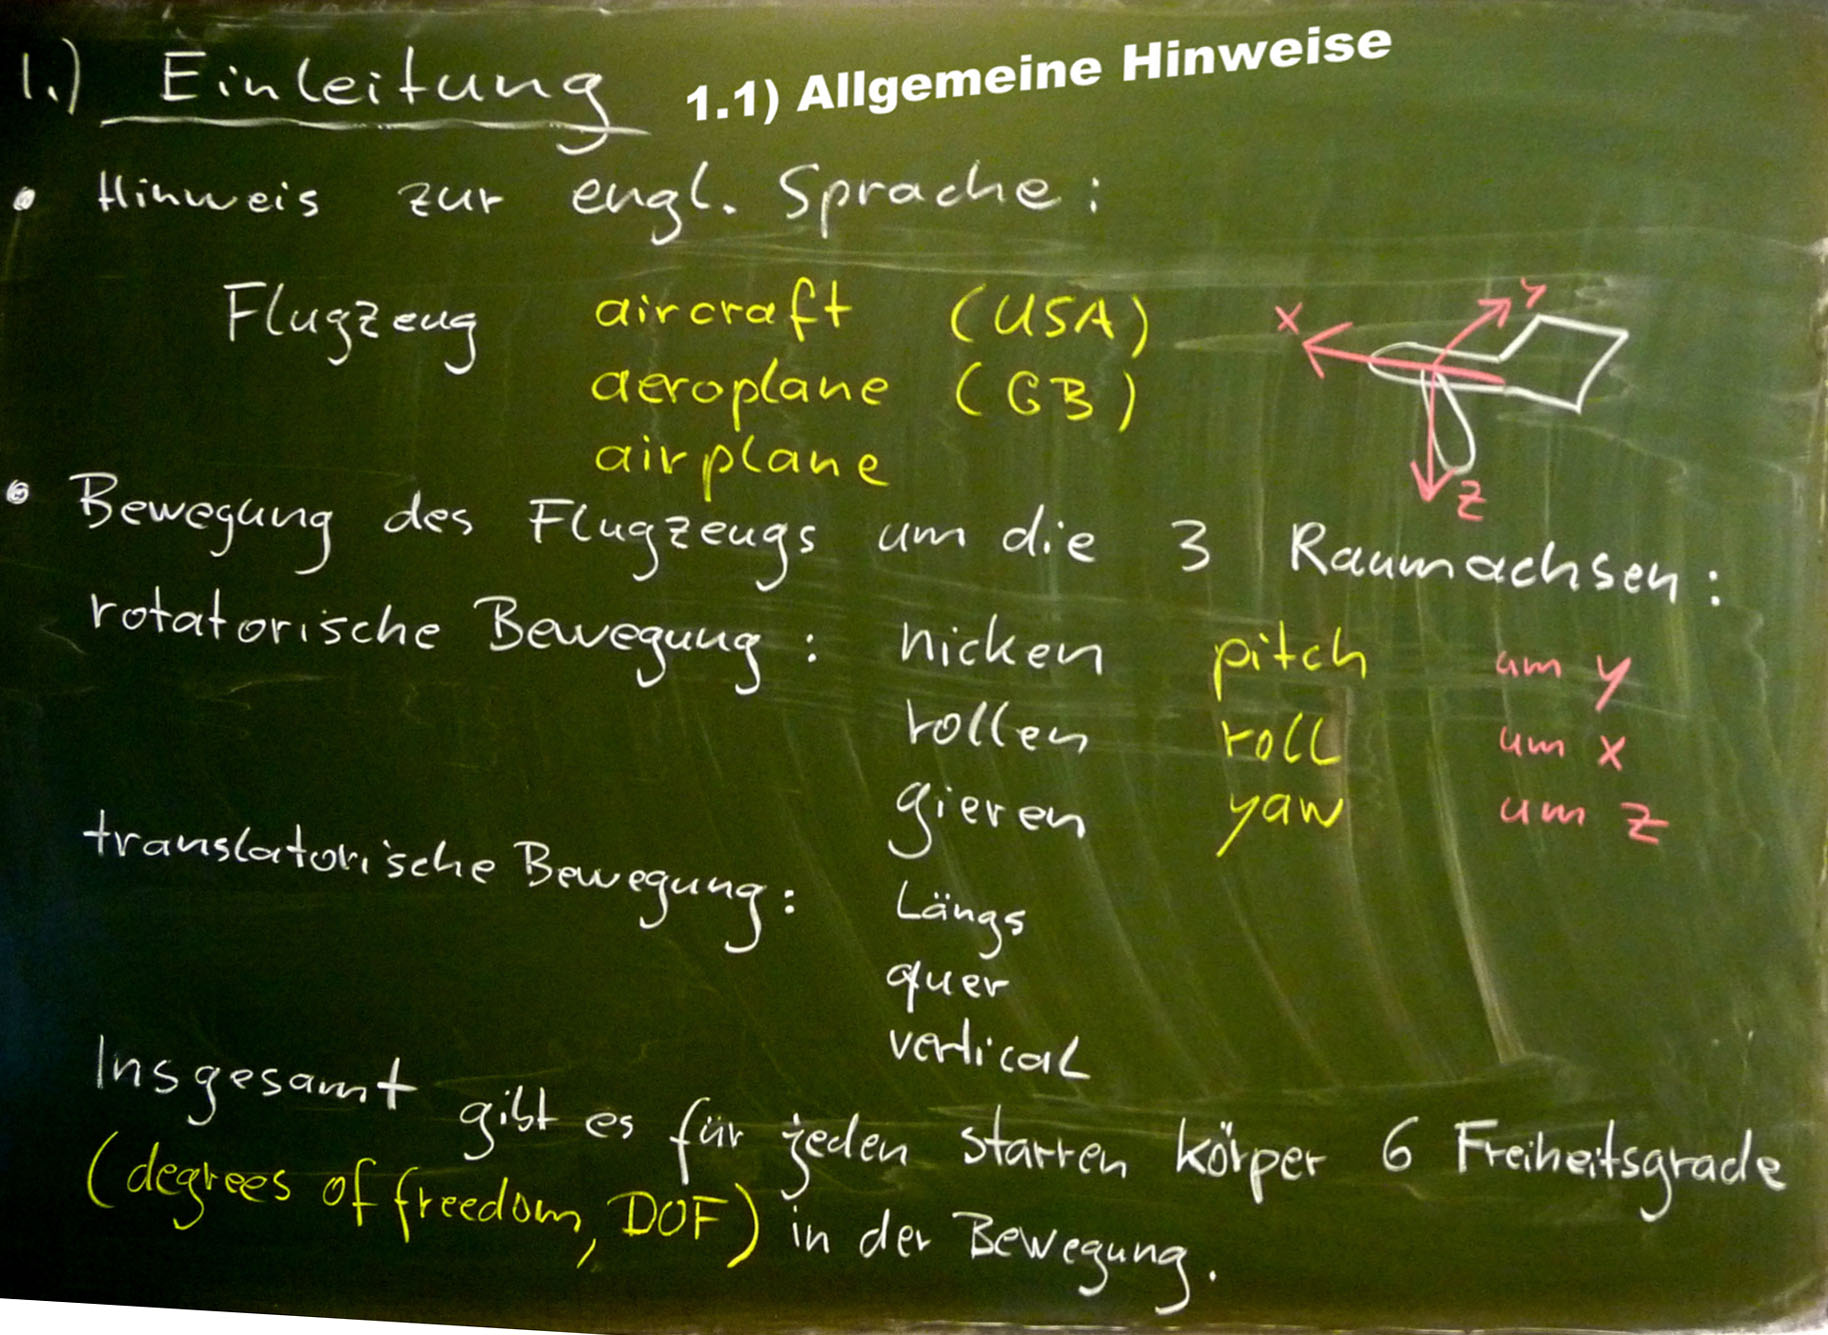 1.) Einleitung 1.1) Allgemeine Hinweise
• Hinweis zur engl. Sprache:
Flugzeug aircraft (USA)
aeroplane (GB)
airplane
x y z
• Bewegung des Flugzeugs um die 3 Raumachsen:
rotatorische Bewegung: nicken pitch um y
rollen roll um x
gieren yaw um z
translatorische Bewegung: Längs
quer
vertical
Insgesamt gibt es für jeden starren körper 6 Freiheitsgrade
(degrees of freedom, DOF) in der Bewegung.